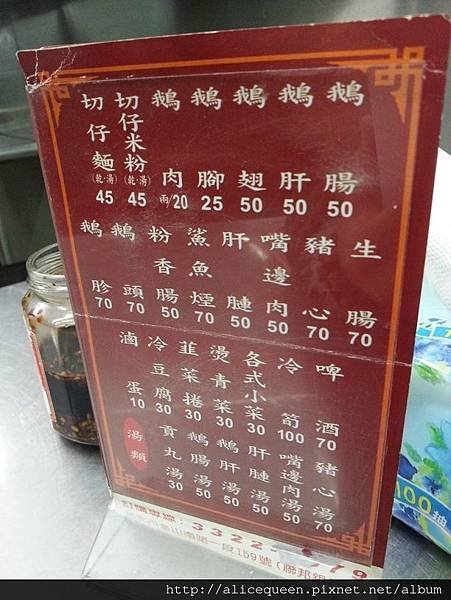 鵝腸 50
鵝肝 50
鵝翅 50
鵝腳 25
鵝肉 兩/20
切仔米粉 (乾·湯) 45
切仔麵 (乾·湯) 45
生腸 70
豬心 70
嘴邊肉 50
肝腱 50
鯊魚煙 70
粉香腸 50
鵝頭 70
鵝胗 70
啤酒 70
冷筍 100
各式小菜 30
燙青菜 30
韮菜捲 30
冷豆腐 30
滷蛋 10
湯類
豬心湯 70
嘴邊肉湯 50
肝腱湯 50
鵝肝湯 50
鵝腸湯 50
貢丸湯 30
訂購專線：3322
一段159號(聯邦銀
100抽
http://alicequeen.pixnet.net/album